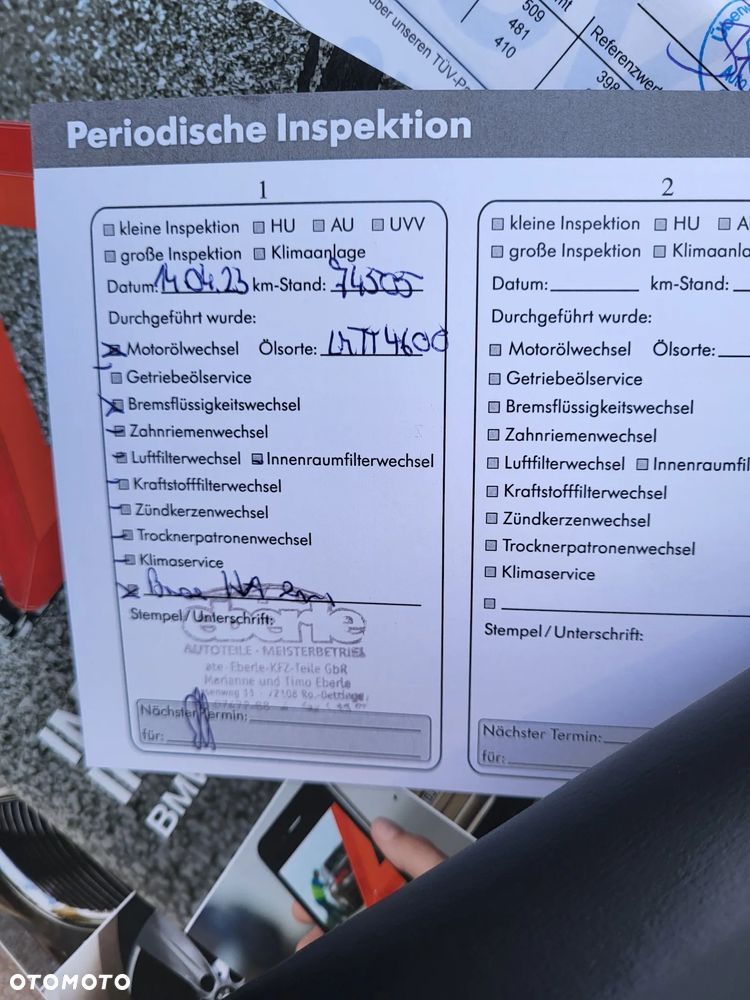 509
481
410
Referenzwer
398
über unseren TÜV-P
Periodische Inspektion
1
kleine Inspektion HU AU UVV
große Inspektion Klimaanlage
Datum: 14.04.23 km-Stand: 74505
Durchgeführt wurde:
Motorölwechsel Ölsorte: 4600
Getriebeölservice
Bremsflüssigkeitswechsel
Zahnriemenwechsel
Luftfilterwechsel Innenraumfilterwechsel
Kraftstofffilterwechsel
Zündkerzenwechsel
Trocknerpatronenwechsel
Klimaservice
Stempel/Unterschrift:
eberle
AUTOTEILE - MEISTERBETRIEB
ate-Eberle-KFZ-Teile GbR
Marianne und Timo Eberle
72108 Ro.-
Nächster Termin:
für:
2
kleine Inspektion HU A
große Inspektion Klimaanla
Datum: km-Stand:
Durchgeführt wurde:
Motorölwechsel Ölsorte:
Getriebeölservice
Bremsflüssigkeitswechsel
Zahnriemenwechsel
Luftfilterwechsel Innenraumfil
Kraftstofffilterwechsel
Zündkerzenwechsel
Trocknerpatronenwechsel
Klimaservice
Stempel/Unterschrift:
Nächster Termin:
für:
BM
OTOMOTO